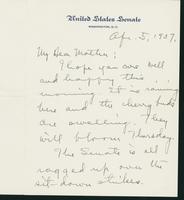 United States Senate
WASHINGTON, D.C.
Apr. 5, 1937.
My Dear Mother;
I hope you are well
and happy this
morning. It is raining
here and the cherry buds
are swelling. They
will bloom Thursday.
The Senate is all
ragged up over the
sit-down strikes.